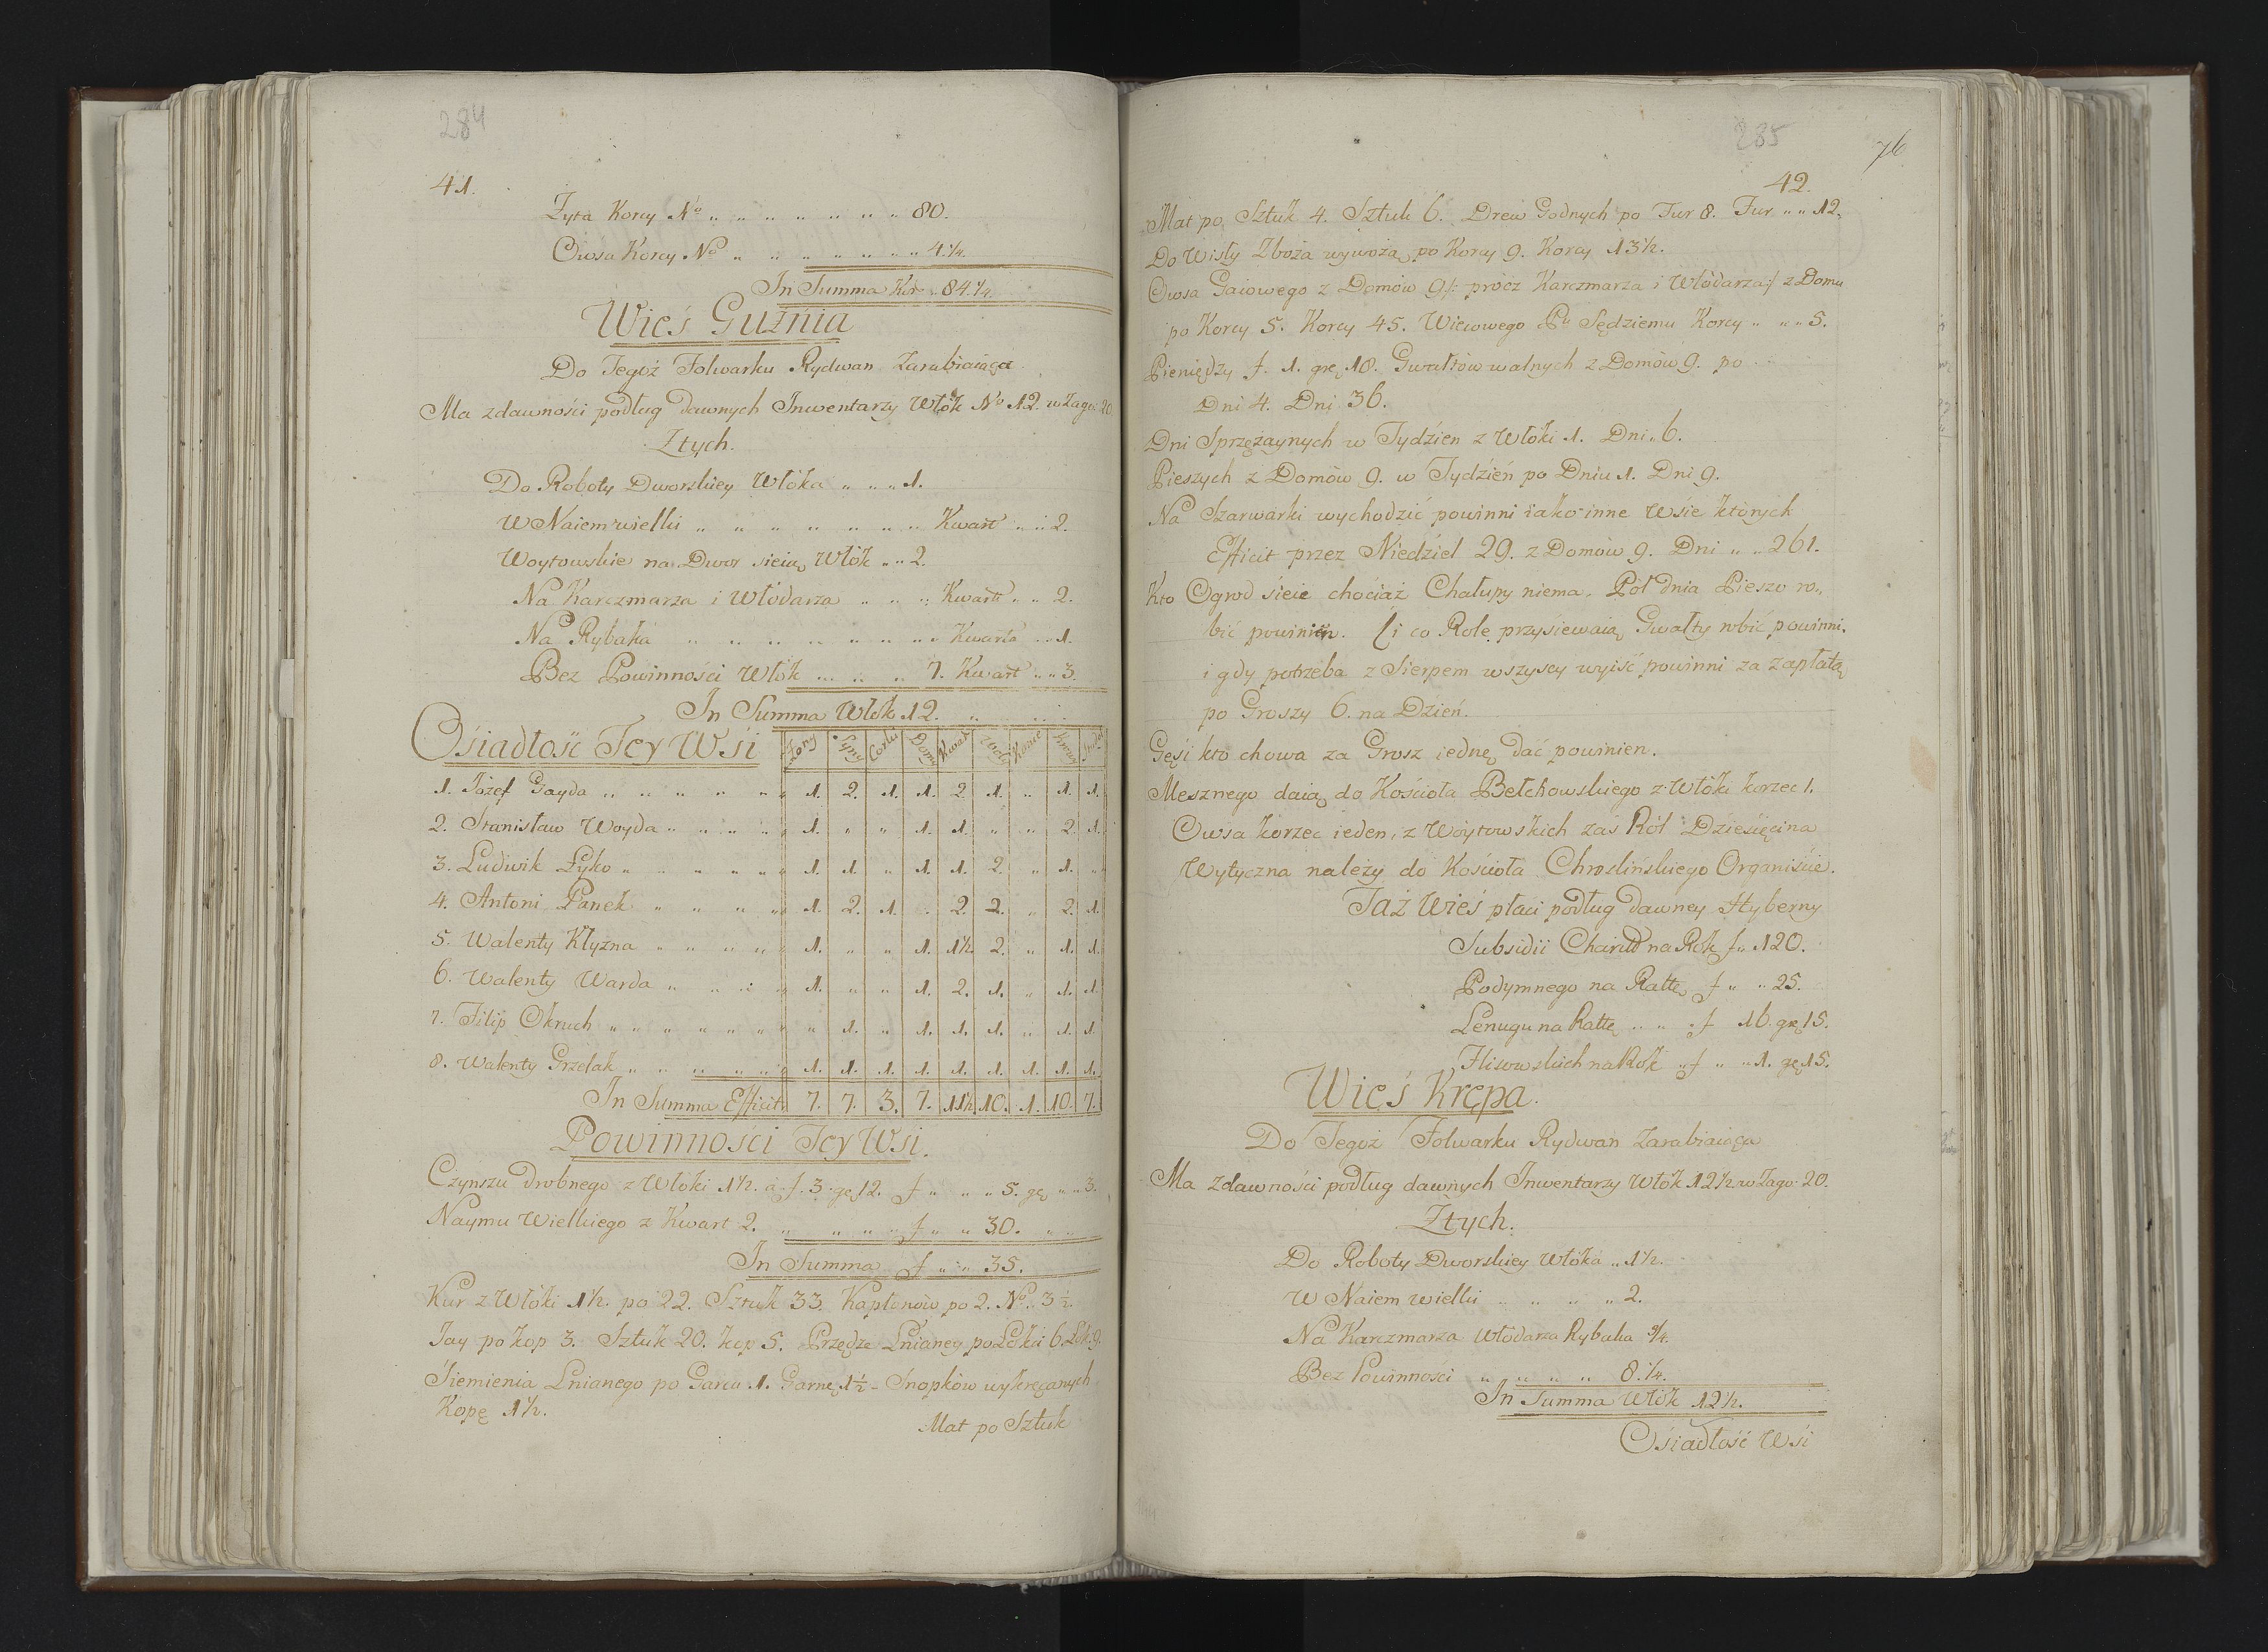 284
41.
Zyta Korcy No „ „ „ „ „ „ „ 80.
Owsa Korcy No „ „ „ „ „ „ „ 4 1/4.
In Summa Kor „ 84.1/4.
Wieś Guźnia
Do Tegoż Folwarku Rydwan Zarabiaiąca
Ma zdawności podług dawnych Inwentarzy Włók No 12. w Zago: 20
Ztych.
Do Roboty Dworskiey Włóka „ „ „ 1.
W Naiem wielki „ „ „ „ „ „ „ Kwart „ „ 2.
Woytowskie na Dwor sieią Włók „ „ 2.
Na Karczmarza i Włódarza „ „ „ Kwart „ „ 2.
Na Rybaka „ „ „ „ „ „ „ Kwarta „ 1.
Bez Powinności Włók „ „ „ 7. Kwart „ „ 3.
In Summa Włók 12.
Osiadłość Tey Wsi Syny Corki Domy Kwart Woły Konie Krowy
1. Józef Gayda „ „ „ „ „ 1. 2. 1. 1. 2. 1. „ 1. 1.
2. Stanisław Woyda „ „ „ „ 1. „ „ 1. 1. „ „ 2. 1.
3. Ludwik Łyko „ „ „ „ „ „ 1. 1. „ 1. 1. 2. „ 1. „
4. Antoni Panek „ „ „ „ 1. 2. 1. „ 2. 2. „ 2. 1.
5. Walenty Kłyzna „ „ „ „ 1. „ „ 1. 1 1/2. 2. „ 1. 1.
6. Walenty Warda „ „ „ „ 1. „ „ 1. 2. 1. „ 1. 1.
7. Filip Okruch „ „ „ „ „ „ „ 1. „ 1. 1. 1. „ 1. 1.
8. Walenty Grzelak „ „ „ „ „ 1. 1. 1. 1. 1. 1. 1. 1. 1.
In Summa Efficit 7. 7. 3. 7. 11 1/2. 10. 1. 10. 7.
Powinności Tey Wsi.
Czynszu drobnego z Włóki 1 1/2. a f. 3. gę 12. f „ „ „ 5. gę „ „ 3.
Naymu Wielkiego z Kwart 2. „ „ „ „ f „ „ 30. „ „
In Summa f „ „ 35.
Kur z Włóki 1 1/2. po 22. Sztuk 33. Kapłonów po 2. No. 3 1/2.
Jay po kop 3. Sztuk 20. kop 5. Przędze Lnianey po Łokci 6. Łok: 9.
Siemienia Lnianego po Garcu 1. Garnę 1 1/2 - Snopków wykręcanych
Kopę 1 1/2.
Mat po Sztuk
285
76
42.
Mat po Sztuk 4. Sztuk 6. Drew Godnych po Fur 8. Fur „ „ 12.
Do Wisły Zboża wywożą po Korcy 9. Korcy 13 1/2.
Owsa Gaiowego z Domów 9 /: prócz Karczmarza i Włódarza :/ z Domu
po Korcy 5. Korcy 45. Wiecowego Pu Sędziemu Korcy „ „ „ 5.
Pieniędzy f. 1. grę 18. Gwałtów walnych z Domów 9. po
Dni 4. Dni 36.
Dni Sprzężaynych w Tydzien z Włóki 1. Dni „ 6.
Pieszych z Domów 9. w Tydzień po Dniu 1. Dni 9.
Na Szarwarki wychodzić powinni iako inne Wsie których
Efficit przez Niedziel 29. z Domów 9. Dni „ „ 261.
Kto Ogrod sieie chociaż Chałupy niema. Pół dnia Pieszo ro„
bić powinien. Ci co Role przysiewaią Gwałty robić powinni.
i gdy potrzeba z Sierpem wszyscy wyiść powinni za zapłatą
po Groszy 6. na Dzień.
Gęsi kto chowa za Grosz iednę dać powinien.
Mesznego daią do Kościoła Bełchowskiego z Włóki korzec 1.
Owsa korzec ieden, z Woytowskich zaś Ról Dziesięcina
Wytyczna należy do Kościoła Chroslińskiego Organiście.
Taż Wieś płaci podług dawney Hyberny
Subsidii Charitt na Rok f „ 120.
Podymnego na Rattę f „ „ 25.
Lenugu na Rattę „ „ f 16. grę 15.
Flisowskich na Rok „ f „ „ 1. gę 15.
Wieś Krępa.
Do Tegoż Folwarku Rydwan Zarabiaiąca
Ma Zdawności podług dawnych Inwentarzy Włók 12 1/2 w Zago: 20.
Ztych.
Do Roboty Dworskiey Włóka „ 1 1/2.
W Naiem wielki „ „ „ „ 2.
Na Karczmarza Włódarza Rybaka 3/4.
Bez Powinności „ „ „ „ 8.1/4.
In Summa Włók 12 1/2.
Osiadłość Wsi